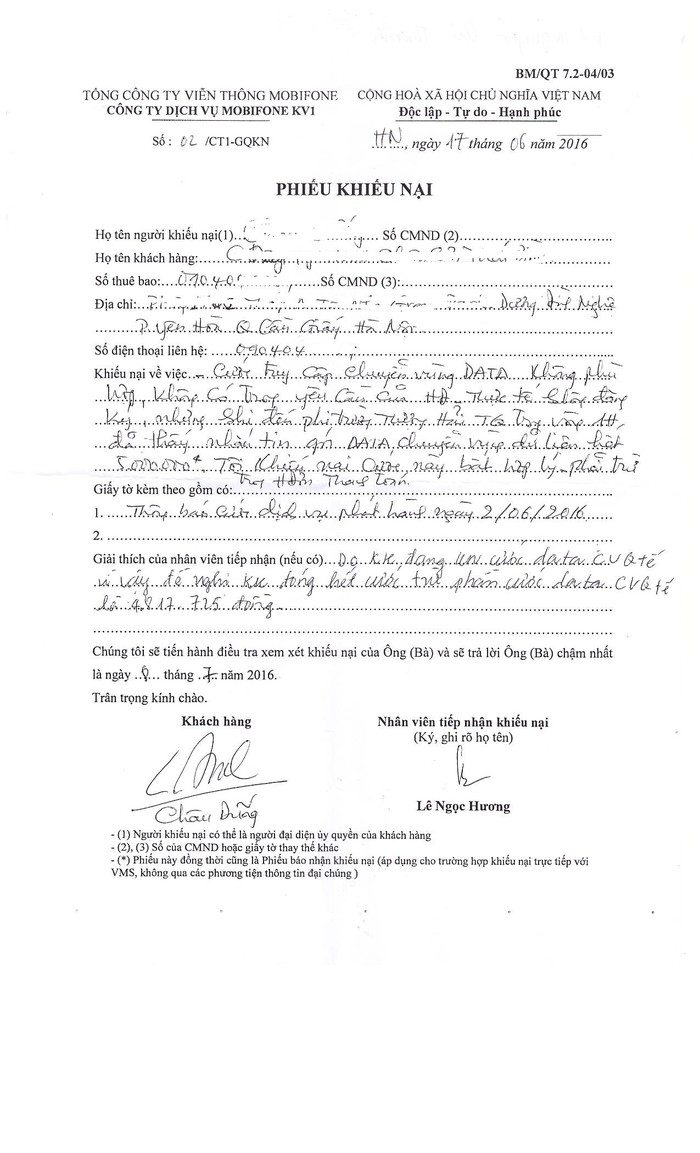 BM/QT 7.2-04/03
TỔNG CÔNG TY VIỄN THÔNG MOBIFONE
CÔNG TY DỊCH VỤ MOBIFONE KV1
Số : 02 /CT1-GQKN
CỘNG HOÀ XÃ HỘI CHỦ NGHĨA VIỆT NAM
Độc lập - Tự do - Hạnh phúc
HN, ngày 17 tháng 06 năm 2016
PHIẾU KHIẾU NẠI
Họ tên người khiếu nại(1) Số CMND (2)
Họ tên khách hàng:
Số thuê bao: 090.4.0 Số CMND (3):
Địa chỉ: Dương Đình Nghệ
P. Yên Hòa Q Cầu Giấy Hà Nội
Số điện thoại liên hệ: 090404
Khiếu nại về việc - Cước truy cập chuyển vùng DATA Không phù
hợp, Không có trong yêu cầu của HĐ. Thực tế không đăng
ký, nhưng khi đến phi trường Thượng Hải TQ trong vòng 1H,
đã thấy nhắn tin gói DATA chuyển vùng dữ liệu hết
5.000.000đ Tôi khiếu nại cước này bất hợp lý phải trừ
trong HĐơn Thanh toán.
Giấy tờ kèm theo gồm có:
1. Thông báo cước dịch vụ phát hành ngày 2/06/2016
2.
Giải thích của nhân viên tiếp nhận (nếu có) Do KH đang KN cước data CVQ tế
vì vậy đề nghị KH đóng hết cước trừ phần cước data CVQ tế
là 4.817.725 đồng
Chúng tôi sẽ tiến hành điều tra xem xét khiếu nại của Ông (Bà) và sẽ trả lời Ông (Bà) chậm nhất
là ngày tháng 7 năm 2016.
Trân trọng kính chào.
Khách hàng
Châu Dũng
Nhân viên tiếp nhận khiếu nại
(Ký, ghi rõ họ tên)
Lê Ngọc Hương
- (1) Người khiếu nại có thể là người đại diện ủy quyền của khách hàng
- (2), (3) Số của CMND hoặc giấy tờ thay thế khác
- (*) Phiếu này đồng thời cũng là Phiếu báo nhận khiếu nại (áp dụng cho trường hợp khiếu nại trực tiếp với
VMS, không qua các phương tiện thông tin đại chúng )